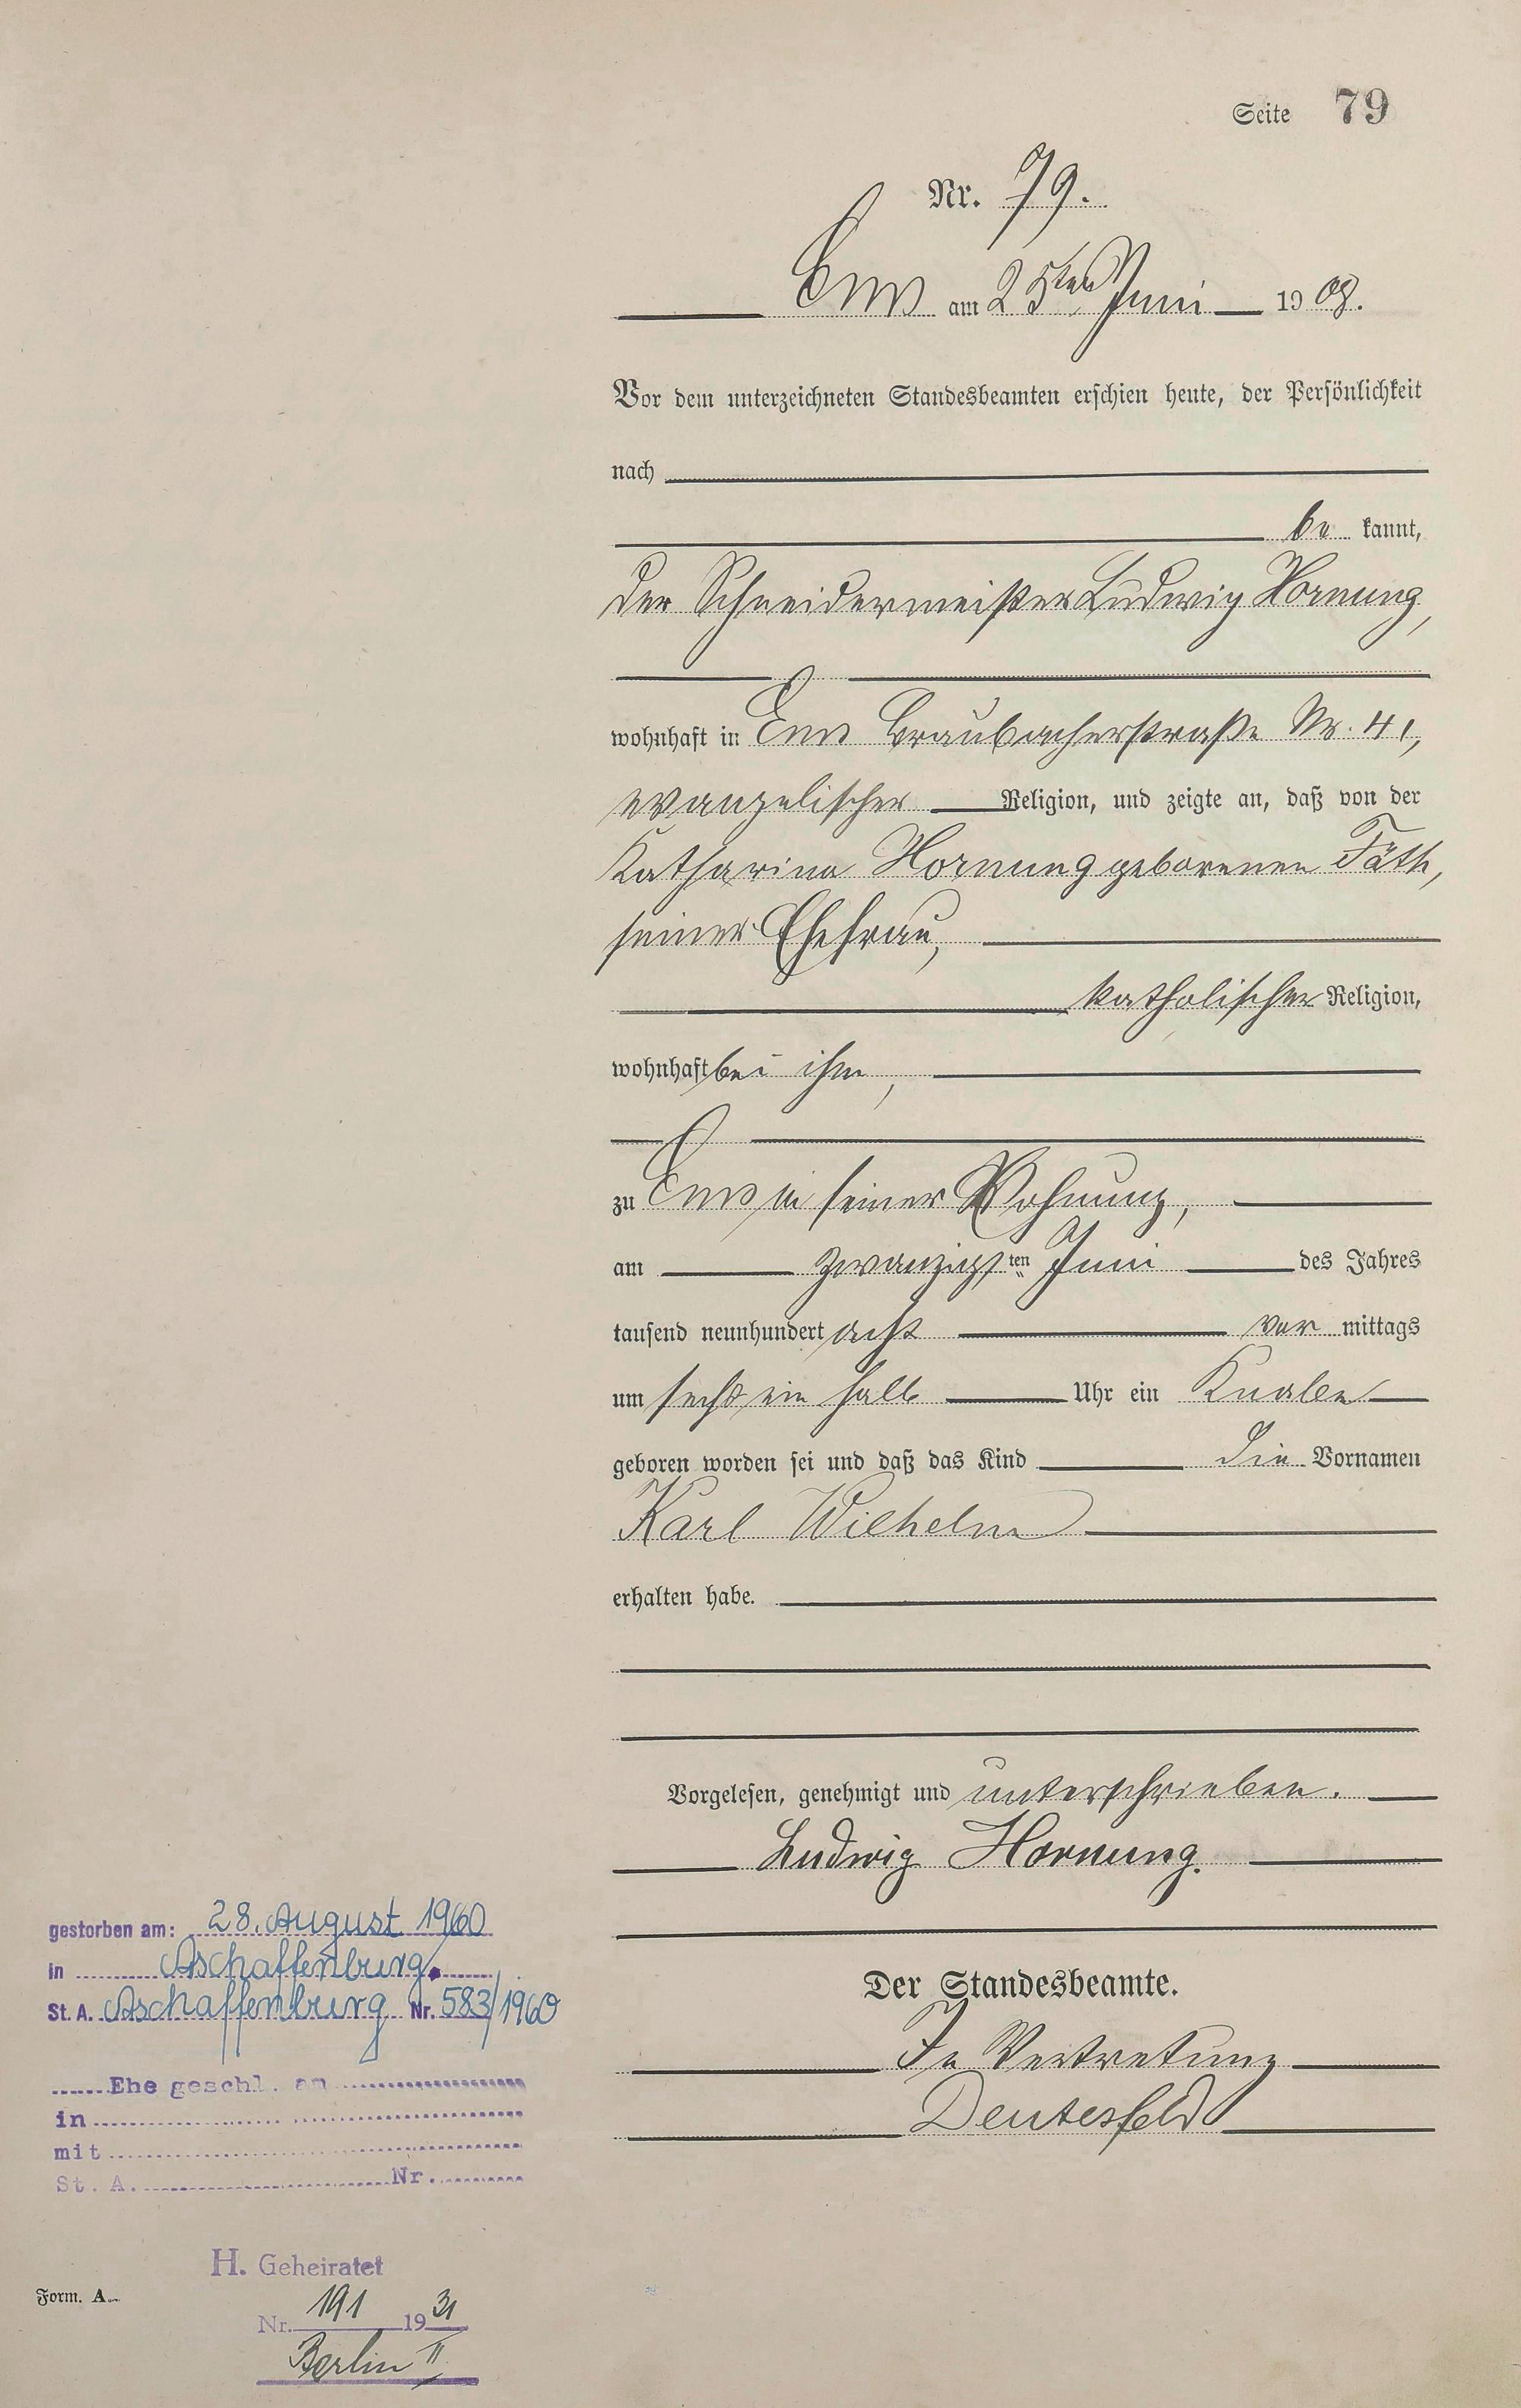 Seite 79
Nr. 79.
Ems am 25ten Juni 1908.
Vor dem unterzeichneten Standesbeamten erschien heute, der Persönlichkeit
nach
be kannt,
der Schneidermeister Ludwig Hornung,
wohnhaft in Ems Braubacherstraße Nr. 41,
evangelischer Religion, und zeigte an, daß von der
Katharina Hornung geborenen Fäth,
seiner Ehefrau,
katholischer Religion,
wohnhaft bei ihm,
zu Ems in seiner Wohnung,
am zwanzigsten Juni des Jahres
tausend neunhundert acht vor mittags
um sechs ein halb Uhr ein Knabe
geboren worden sei und daß das Kind die Vornamen
Karl Wilhelm
erhalten habe.
Vorgelesen, genehmigt und unterschrieben.
Ludwig Hornung.
Der Standesbeamte.
In Vertretung
Deutesfeld
gestorben am: 28. August 1960
in Aschaffenburg.
St. A. Aschaffenburg Nr. 583/1960
Ehe geschl. am
in
mit
St. A. Nr.
H. Geheiratet
Nr. 191 1931
Berlin II
Form. A.